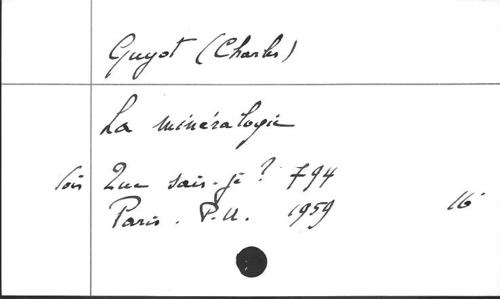 Guyot (Charles)
La minéralogie
Que sais-je? 794
Paris. P.U. 1959 16